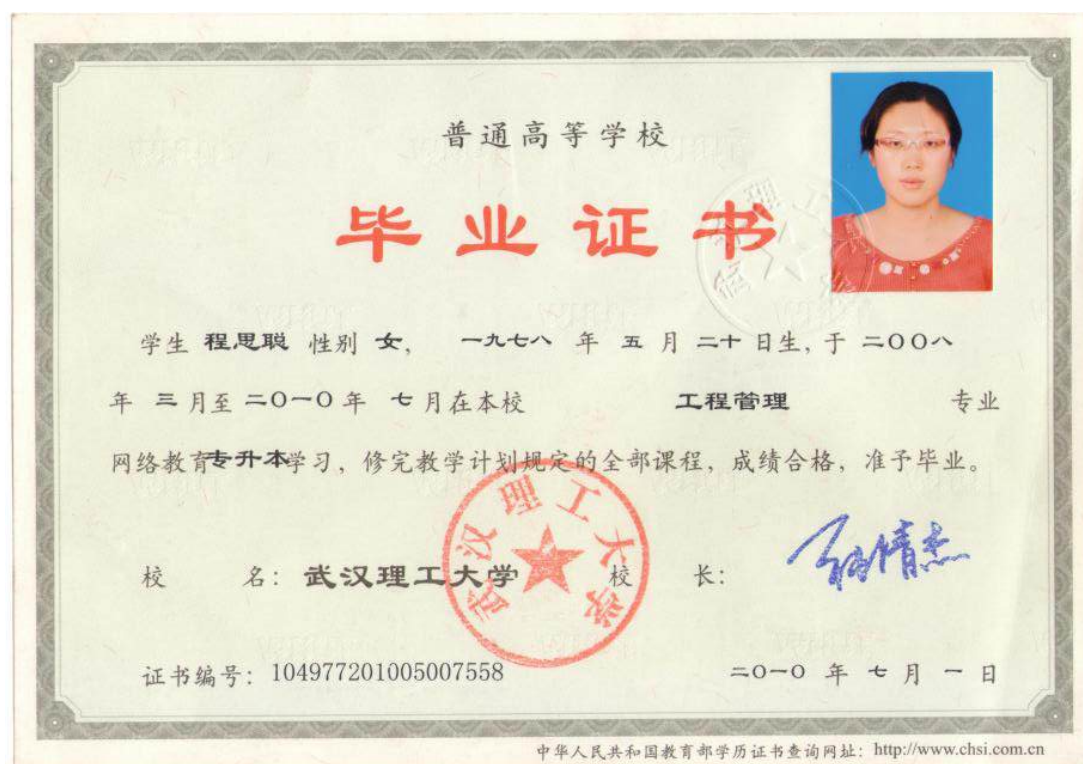 普通高等学校
毕业证书
学生 程思聪 性别 女， 一九七八 年 五 月 二十 日生，于 二〇〇八
年 三 月至 二〇一〇 年 七 月在本校 工程管理 专业
网络教育专升本学习，修完教学计划规定的全部课程，成绩合格，准予毕业。
校 名：武汉理工大学 校 长：
武汉理工大学
证书编号：104977201005007558 二〇一〇 年 七 月 一 日
中华人民共和国教育部学历证书查询网址：http://www.chsi.com.cn